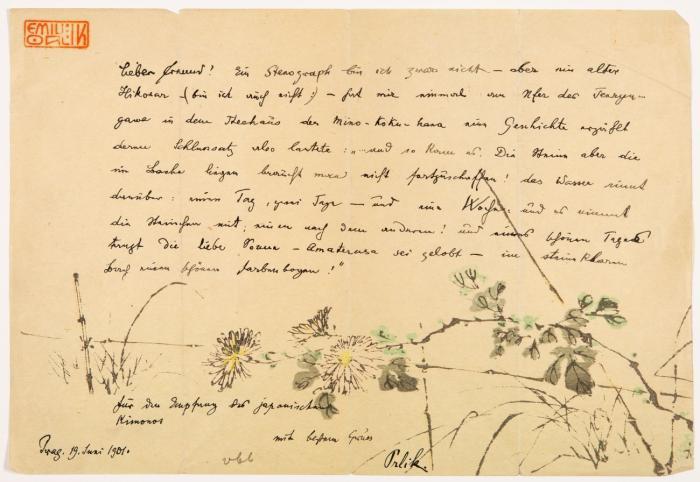 EMIL
ORLIK
Lieber Freund! Ein Stenograph bin ich zwar nicht – aber ein alter
(bin ich auch nicht) – hat mir einmal am Ufer des
gawa in dem Theehaus der eine Geschichte erzählt
deren Schlusssatz also lautete: „und so kam es. Die Steine aber die
im Bache liegen braucht man nicht fortzuschaffen! das Wasser rinnt
darüber: einen Tag, zwei Tage – und eine Woche: und es nimmt
die Steinchen mit, einen nach dem anderen! und eines schönen Tages
trägt die liebe Sonne – Amaterasu sei gelobt – im
Bach einen schönen Farbenbogen!"
für den Empfang des japanischen
Kimonos
mit bestem Gruss
Prag. 19. Juni 1901.
Orlik.